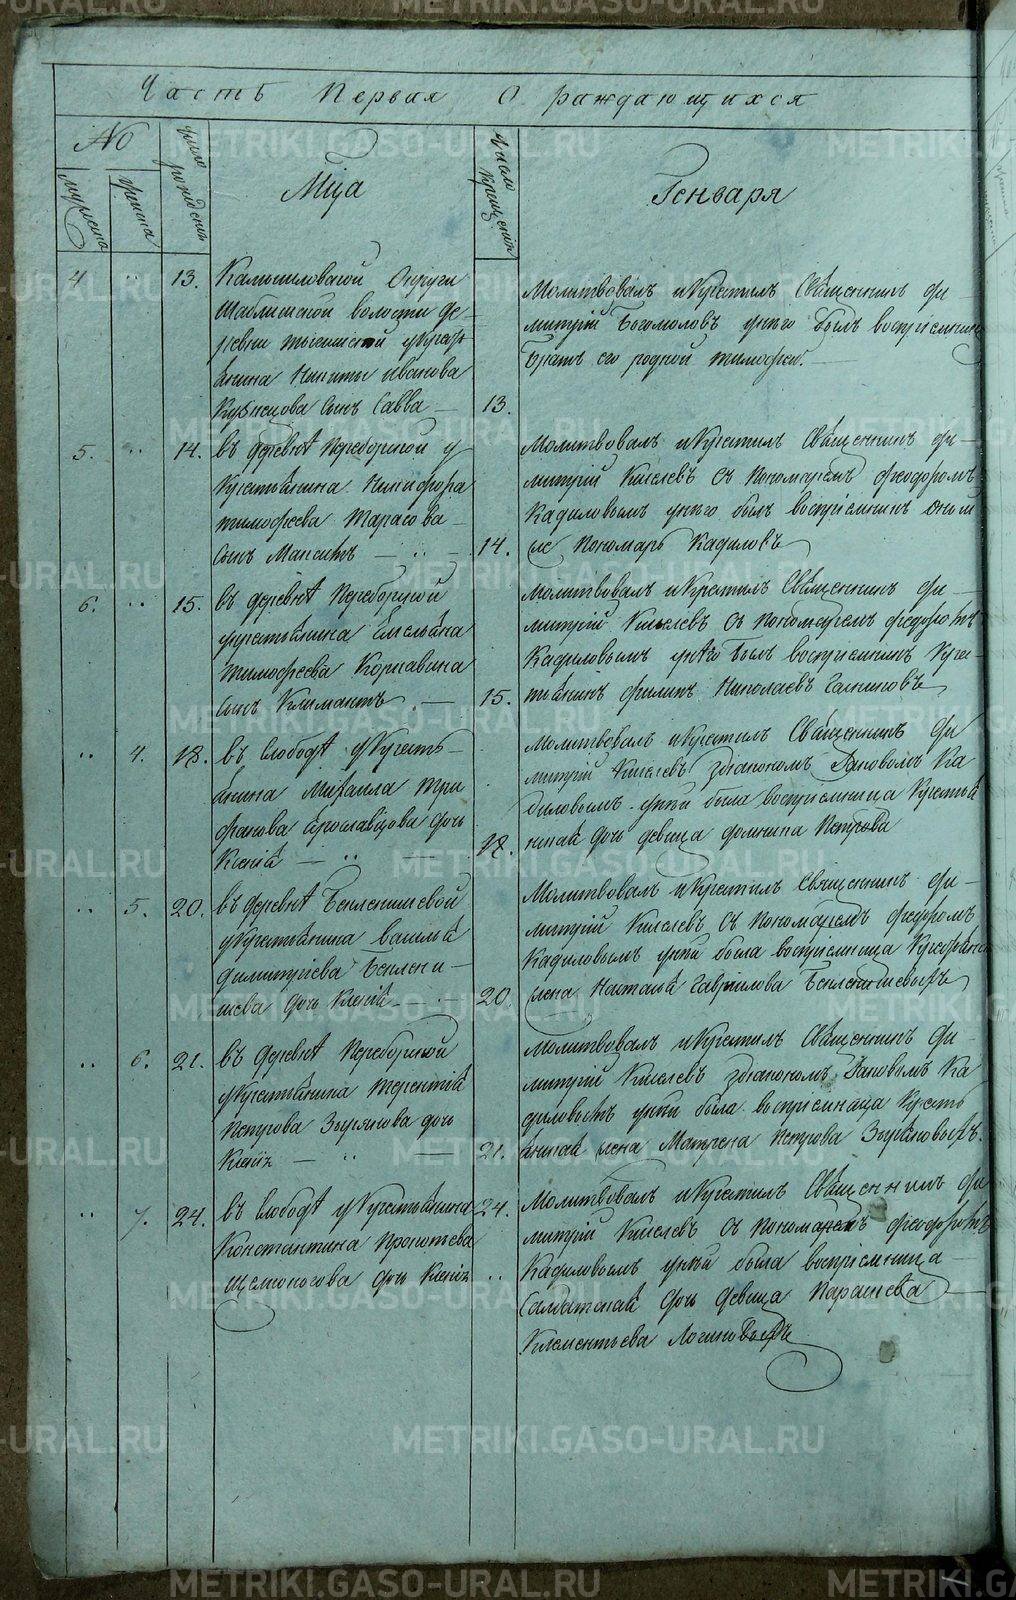 Часть Первая О раждающихся
№
мужеска
женска
число рожденія
Мца
Число крещенія
Генваря
4 13. Камышловской Округи
Шаблишской волости де-
ревни
Никиты Иванова
Кузнецова сынъ Савва —
13.
Молитвовалъ и Крестилъ Священникъ Ди-
митрій Богомоловъ унего былъ воспріемник
братъ его родной Тимофей. —
5. 14. въ деревнѣ Переборной у
крестьянина Никифора
тимофеева Тарасова —
сынъ Максимъ —
14.
Молитвовалъ и Крестилъ Священникъ Ди-
митрій Киселевъ съ Пономаремъ Феодоромъ
Кадиловымъ унего былъ воспріемникъ оном
же Пономарь Кадиловъ
6. 15. въ деревнѣ Переборной
укрестьянина Емельяна
тимофеева Коркавина
сынъ Климантъ —
15.
Молитвовалъ и Крестилъ Священникъ Ди-
митрій Киселевъ съ пономаремъ Федоромъ
Кадиловымъ унего былъ воспріемникъ Крес-
тьянинъ Филипъ Николаевъ
4. 18. въ Слободѣ у Кресть-
янина Михаила Три
фанова Ярославцова дочь
Ксенія —
18.
Молитвовалъ и Крестилъ Священникъ Ди
митрій Киселевъ здіакономъ Іаковомъ Ка
диловымъ уней была воспріемница Крестья
нская дочь девица домника Петрова
5. 20. въ деревнѣ Бекленищевой
у Крестьянина василья
димитріева Беклени-
щева дочь Ксенія —
20
Молитвовалъ и Крестилъ Священникъ Ди-
митрій Киселевъ съ пономаремъ Феодоромъ
Кадиловымъ уней была воспріемница Крестьянск
жена Наталья Гаврилова Бекленищевыхъ
6. 21. въ деревнѣ Переборной
у Крестьянина терентія
Петрова Зырянова дочь
Ксенія —
21.
Молитвовалъ и Крестилъ Священникъ Ди-
митрій Киселевъ здіакономъ Іаковомъ Ка
диловымъ уней была воспріемница Кресть
янская жена Матрена Петрова Зыряновыхъ.
7. 24. въ Слободѣ у Крестьянина
Константина Прокопьева
Щелконогова дочь Ксенія
24.
Молитвовалъ и Крестилъ Священникъ Ди
митрій Киселевъ съ пономаремъ Феодоромъ
Кадиловымъ уней была воспріемница —
Салдатская дочь девица Параскева —
Клементьева Логиновыхъ